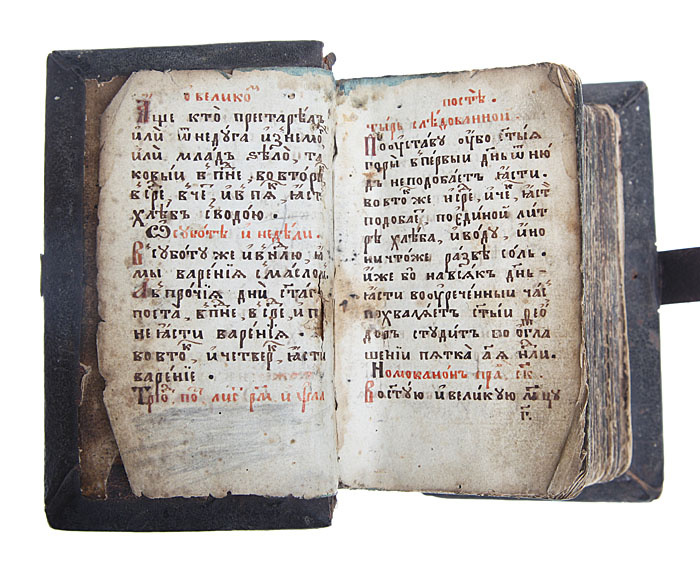 о велико
Аще кто престарелъ
или ѿ недуга изнемо
или младъ ѕело, та
ковый в пне, во вторн
в сре, в че, и в пя, ꙗст
хлебъ с водою.
Ѡ суботе и недели.
В суботу же и в нлю, ꙗ
мы варения с маслом
А в прочїя дни стаг
поста, в пне в сре, и п
не ꙗсти варения.
во вто, и четвер, ꙗсти
варенїе.
посте.
тырь следованной
По оуставу оубо, стыя
горы в первый днь ѿню
дъ неподобаетъ ꙗсти.
во вто же и сре, и че, ꙗст
подобает по единой лит
ре хлеба, и воду, и но
ничтоже разве соль.
иже бо на всякъ днь
ꙗсти во оуреченный час
похваляетъ стый ѳео
доръ студитъ во огла
шенїи пятка, а я нли.
Номоканонъ пра, ск.
В остую и великую
г҃.